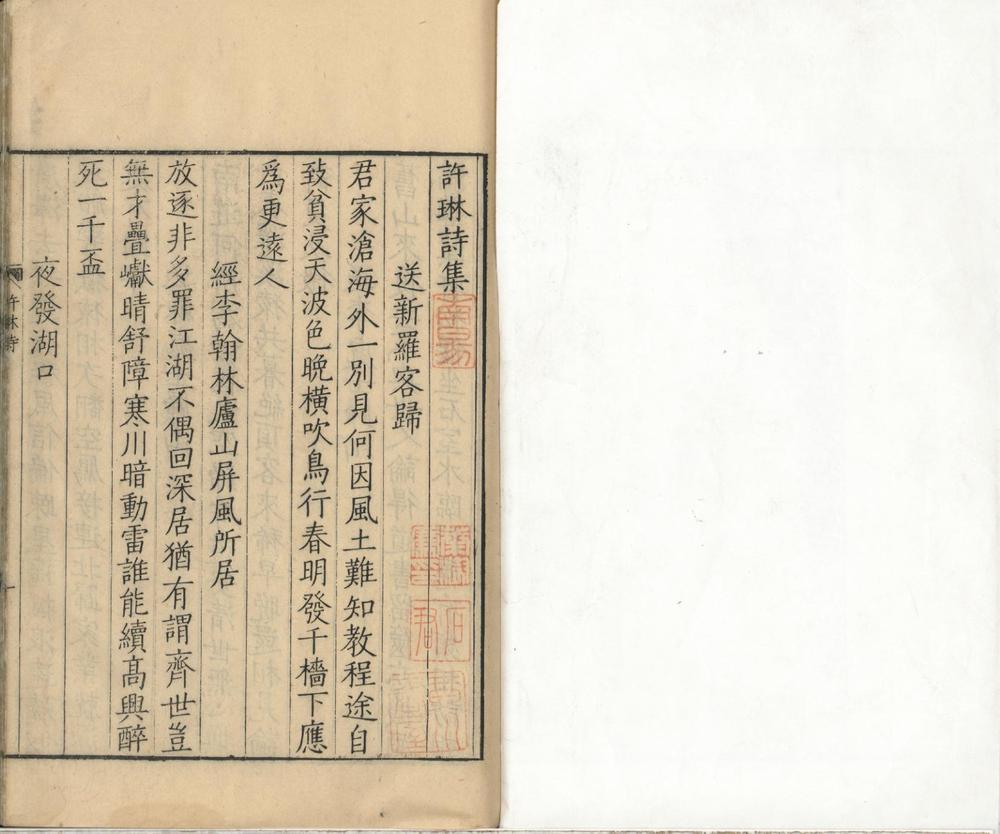 許琳詩集
送新羅客歸
君家滄海外一別見何因風土難知教程途自
致貧浸天波色晚橫吹鳥行春明發千檣下應
爲更遠人
經李翰林廬山屏風所居
放逐非多罪江湖不偶回深居猶有謂齊世豈
無才疊巘晴舒障寒川暗動雷誰能續高興醉
死一千盃
夜發湖口
許琳詩
一